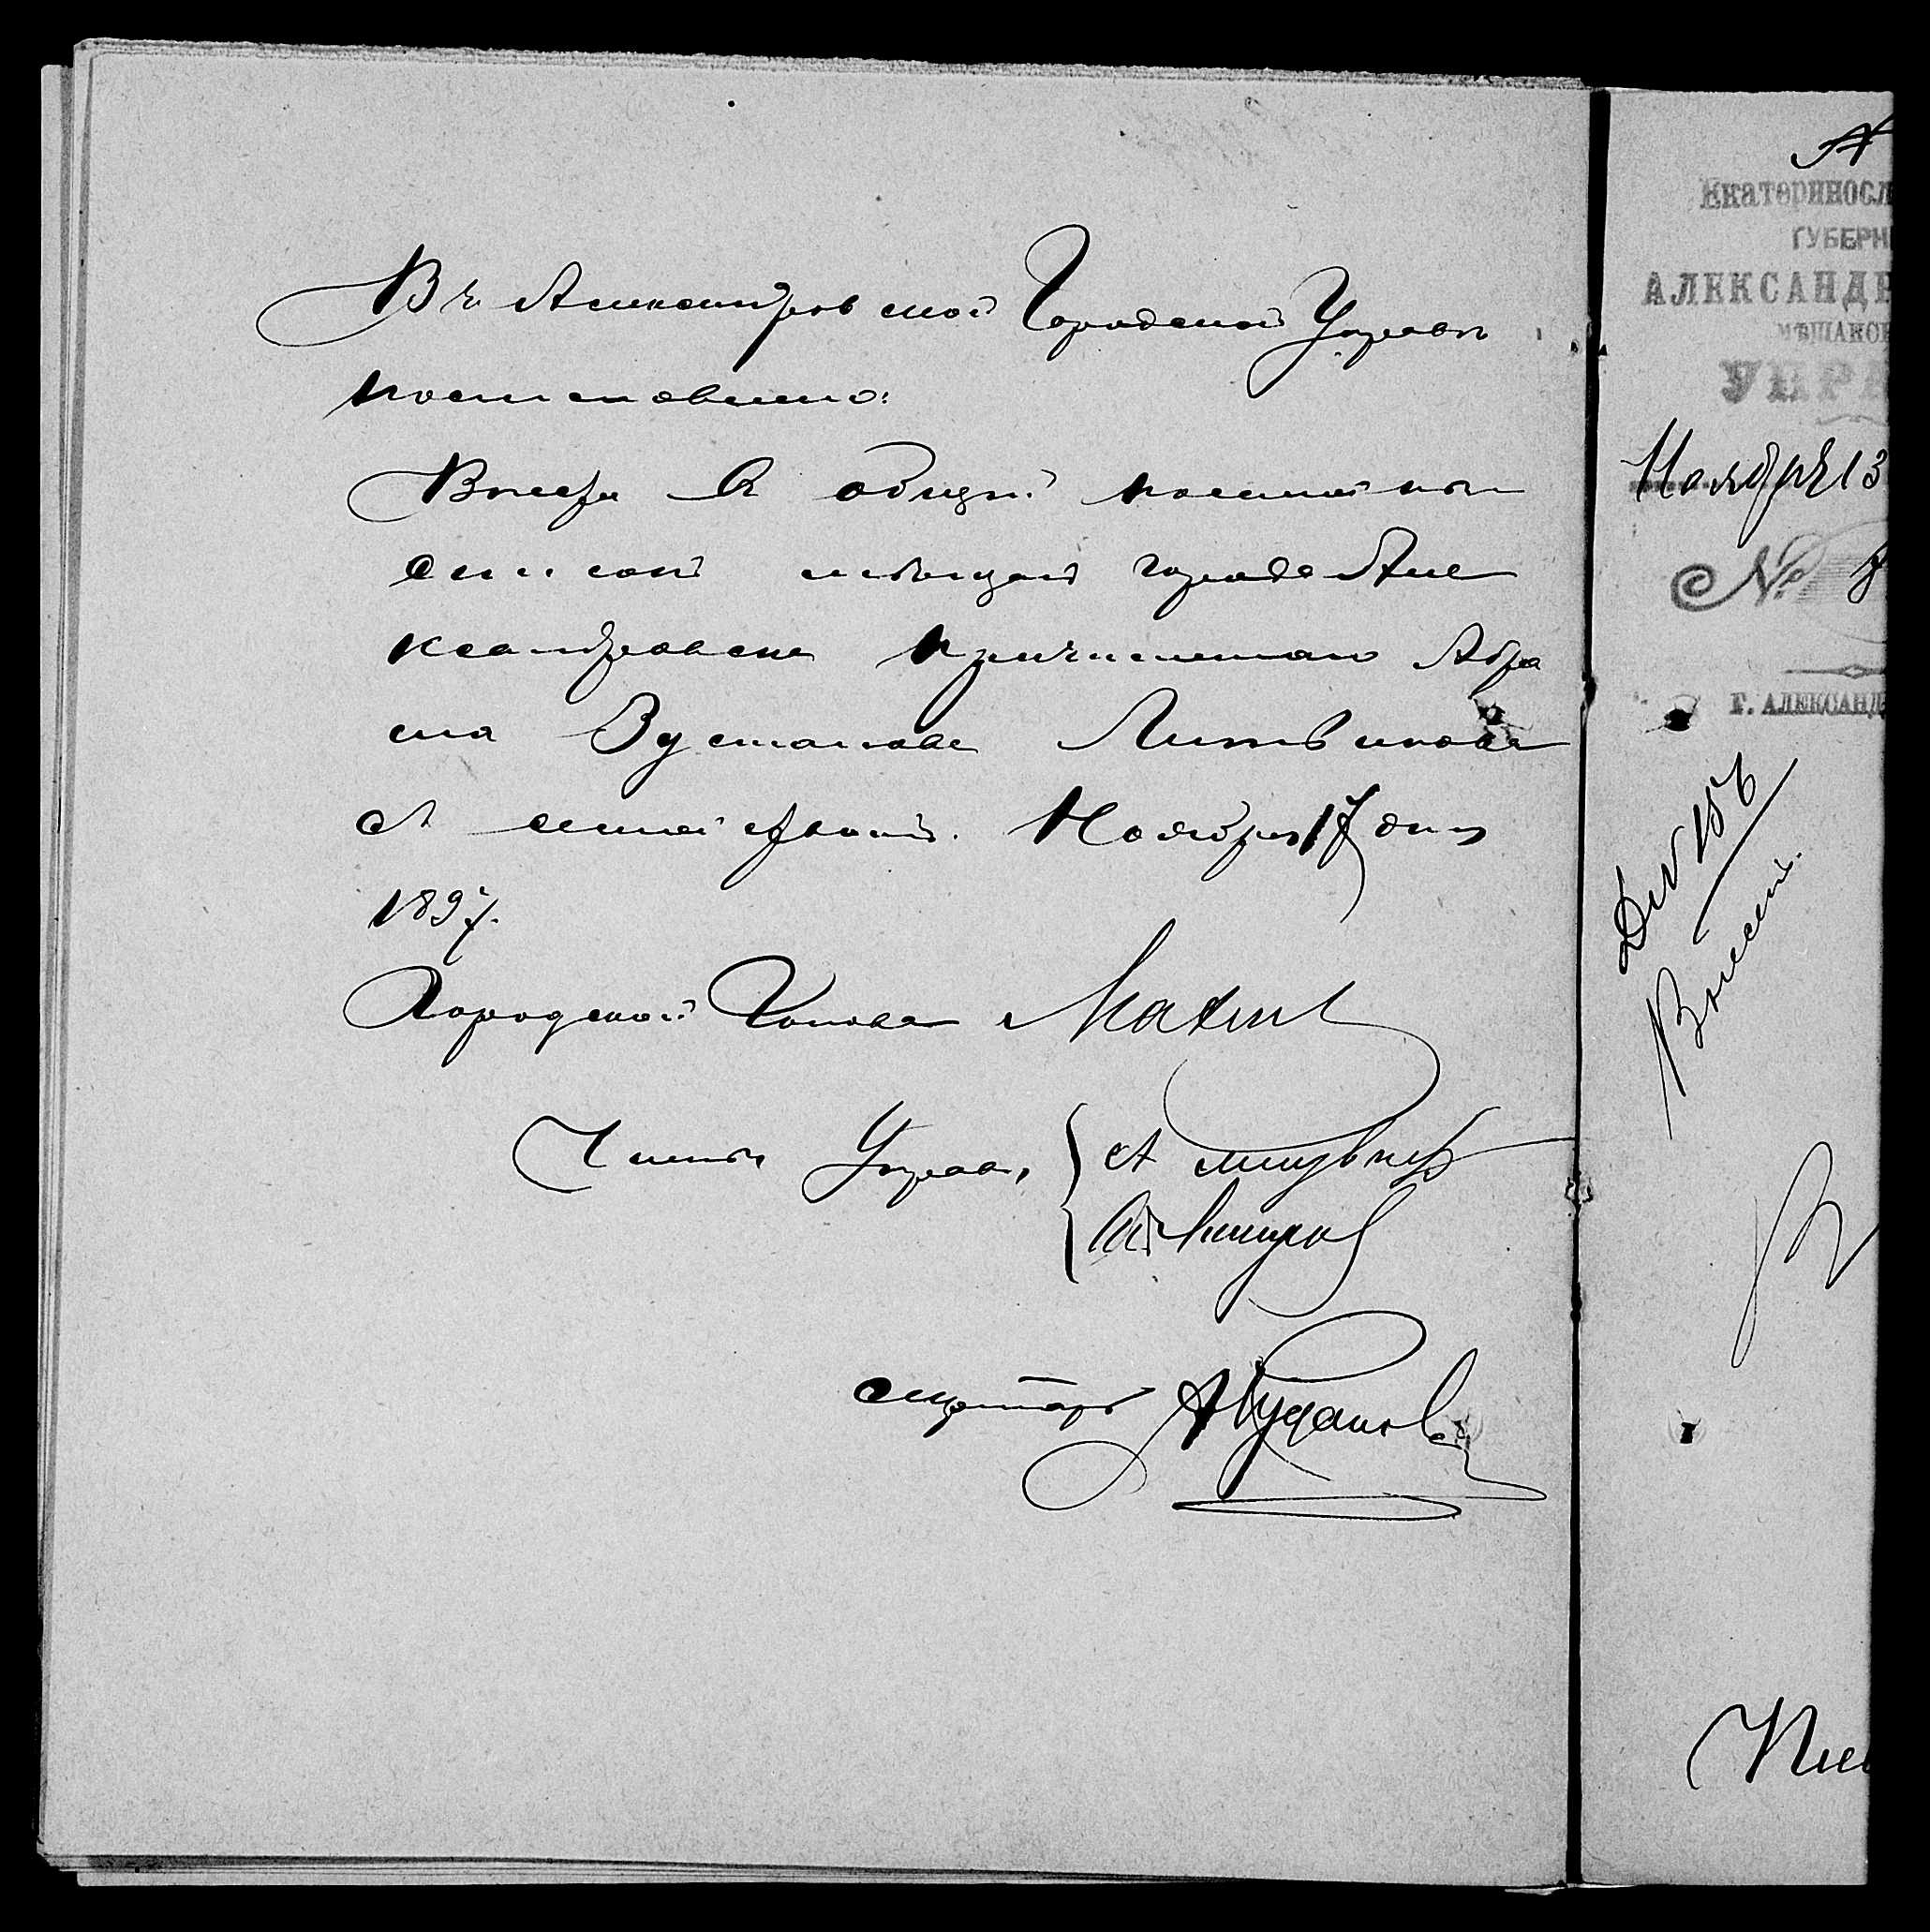 Въ Александровской Городской Управѣ
постановлено:
Внести въ общій посемейный
списокъ мѣщанъ города Але
ксандровска причисленнаго Абра
ма Зусманова Литвинова
съ семействомъ. Ноября 17 дня
1897.
Городской Голова Махно
Члены Управы
Секретарь
Екатериносл
ГУБЕРН
АЛЕКСАНДР
МѢЩАНСК
УПРА
Ноября 13
№
Г. АЛЕКСАНД
156
Внесенъ.